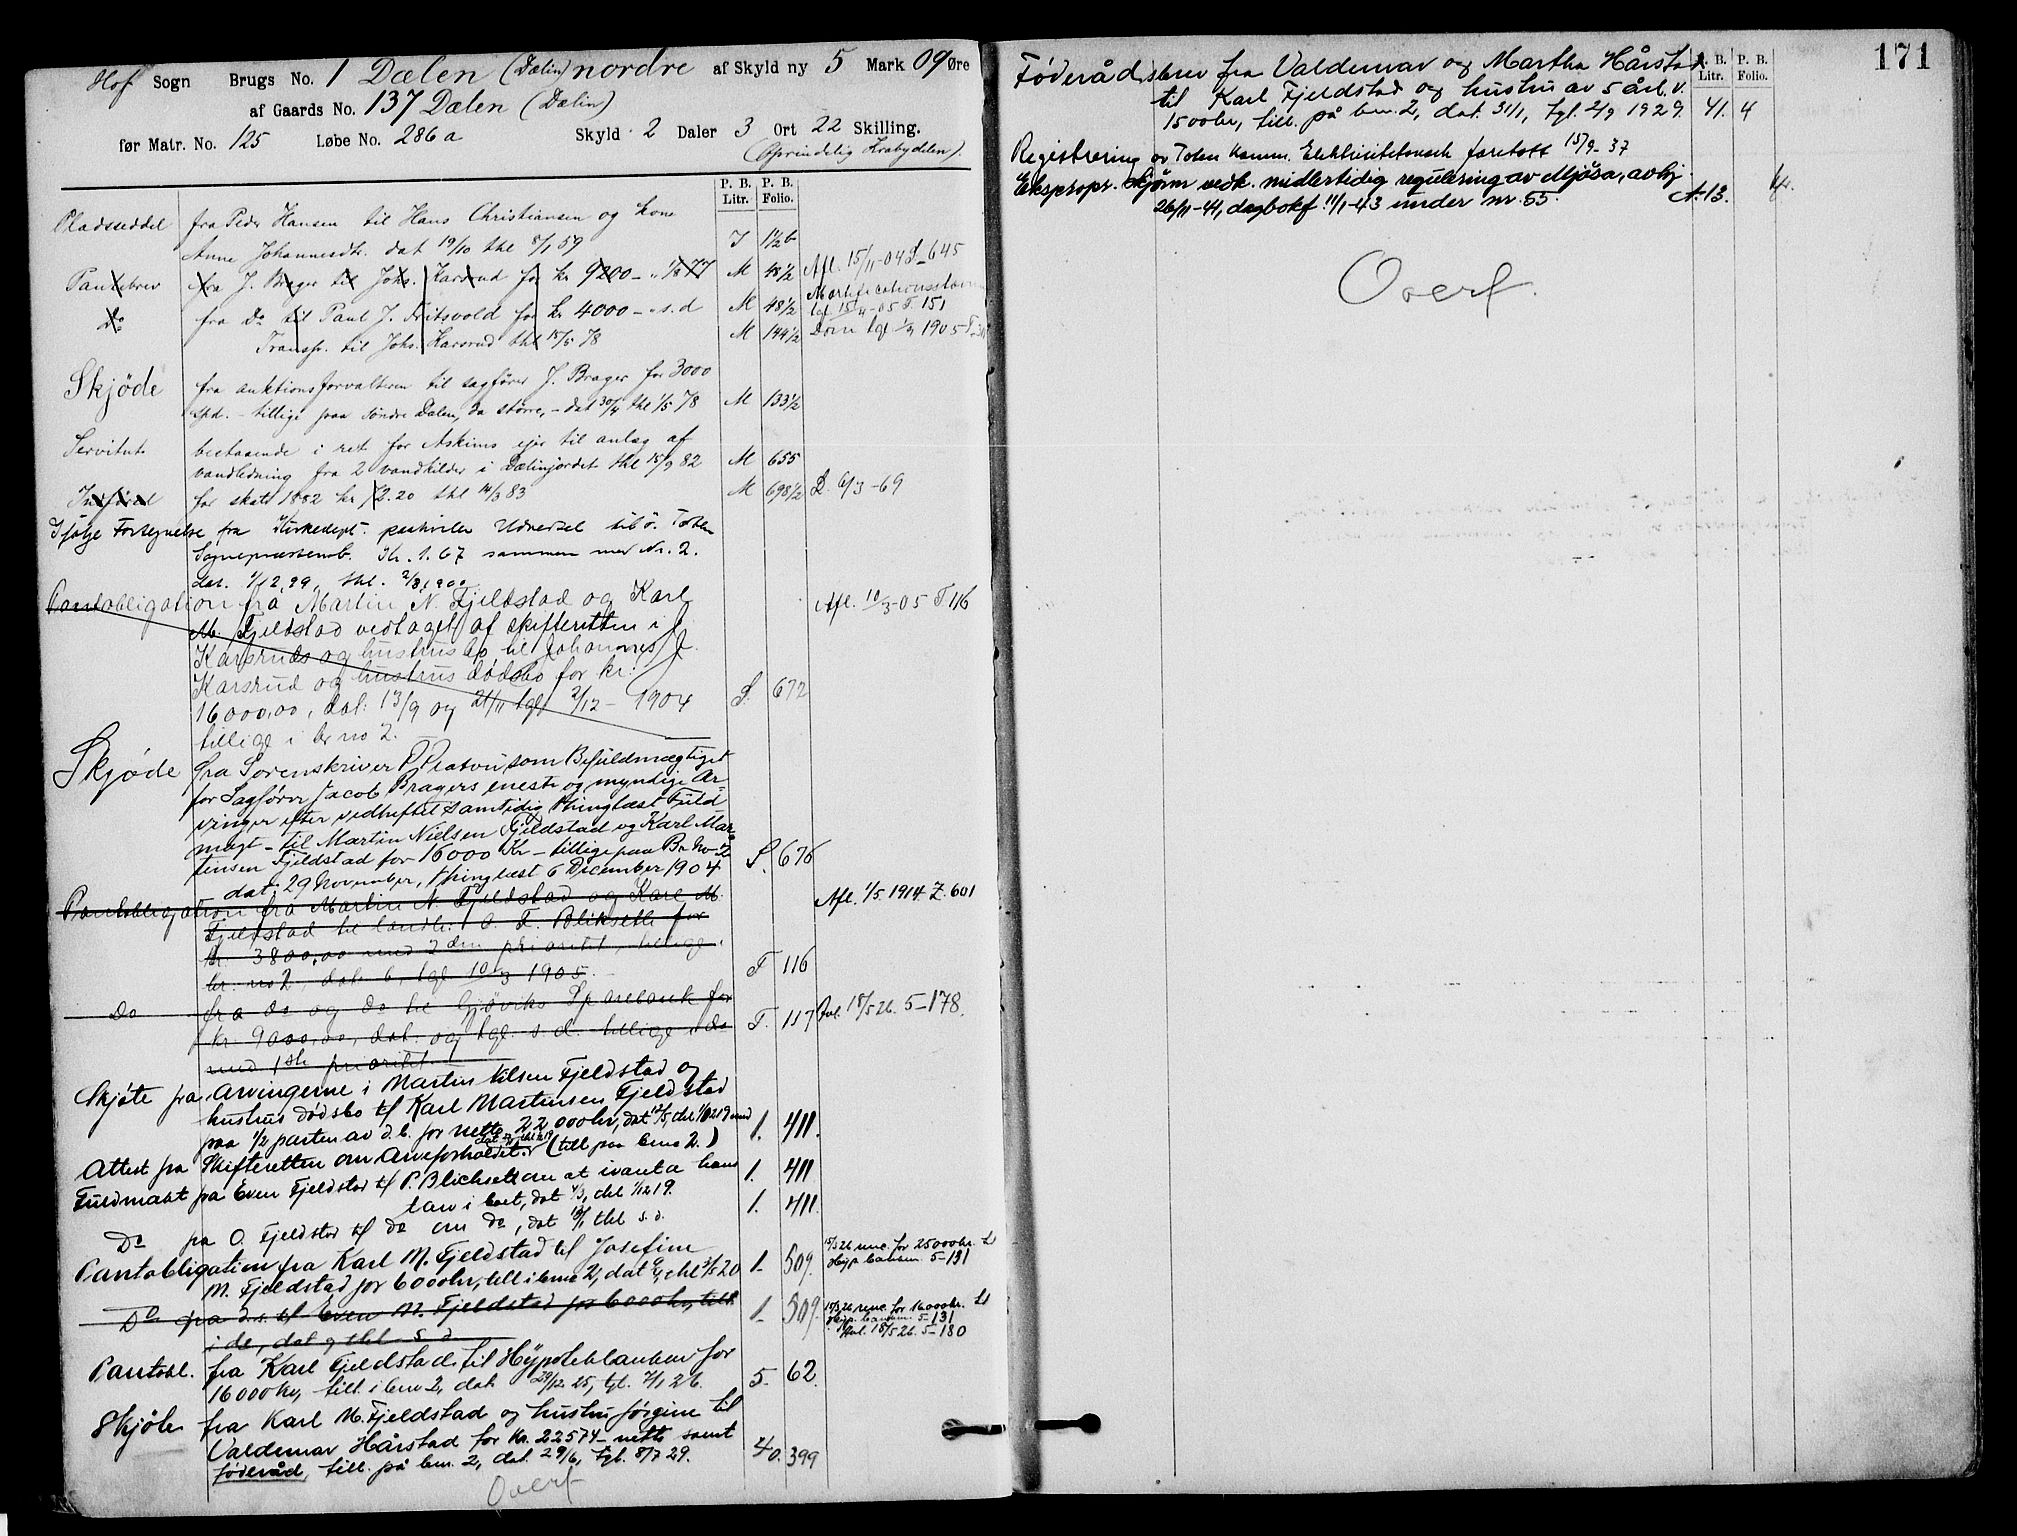 Hof Sogn Brugs No. 1 Dælen (Dælin) nordre af Skyld ny 5 Mark 09 Øre
af Gaards No. 137 Dælen (Dælin)
før Matr. No. 125 Løbe No. 286a Skyld 2 Daler 3 Ort 22 Skilling.
(Oprindelig Krabydelen).
P. B. Litr. P. B. Folio.
Pladsseddel fra Peder Hansen til Hans Christiansen og kone
Anne Johannesdtr. dat 19/10 thl 8/1 59 I 1½b
Pantebrev fra J. Brager til Johs. Karsrud for kr 9200 - " 1/8 77 M 48½ Afl. 15/11-04 S-645
Do fra Do til Paul J. for kr 4000 - s.d M 48½ Mortificationsstevn. tgl 15/4-05 T. 151
Transp. til Johs. Karsrud thl 15/5 78 M 144½ Dom tgl 1905
Skjøde fra auktionsforvalteren til sagfører J. Brager for 3000
spd. - tillige paa søndre Dælen, da større, - dat 30/4 thl 1/5 78 M 133½
Servitut bestaaende i ret for Askims ejer til anlæg af
vandledning fra 2 vandkilder i Dælinjordet thl 15/9 82 M 655
Indførsel for skatt 1882 kr. 72.20 thl 14/3 83 M 698½ L 6/3-69
Ifølge Fortegnelse fra Kirkedept. perhviler Udversel til ö. Toten
Sognepræstemb. Kr. 1.67 sammen med Nr. 2.
dat. 1/12 99, thl. 2/8 1900
Pantobligation fra Martin N. Fjeldstad og Karl
M. Fjeldstad vedtaget af skifteretten i J.
Karsruds og hustrus bo til Johannes J.
Karsrud og hustrus dødsbo for kr.
16000,00, dat. 13/9 og 21/11 tgl 2/12 - 1904 S. 672 Afl. 10/3-05 T 116
tillige i br no 2.
Skjøde fra Sorenskriver P. Platou som Befuldmægtiget
for Sagfører Jacob Bragers eneste og myndige Ar-
vinger efter vedheftet samtidig thinglæst Fuld-
magt - til Martin Nielsen Fjeldstad og Karl Mar-
tinsen Fjeldstad for 16000 Kr - tillige paa Br No 2 S. 676
dat. 29 November, thinglæst 6 December 1904
Pantobligation fra Martin N. Fjeldstad og Karl M. Afl. 1/5 1914 Z. 601
Fjeldstad til landh. O. T. Blikseth for
kr. 3800,00 med 2den prioritet, tillige i
br. no 2, dat. 6, tgl 10/3 1905. T 116
Do fra do og do til Gjøviks Sparebank for Avl. 18/5 26. 5-178.
kr. 9000,00, dat. og tgl. s. d. tillige i do T. 117
med 1ste prioritet
Skjøte fra Arvingerne i Martin Nilsen Fjeldstad og
hustrus dødsbo til Karl Martinsen Fjeldstad
paa 1/2 parten av d.b. for netto 22000kr, dat 12/5, thl 1/12 19 med 1. 411.
Attest fra Skifteretten om Arveforholdet (till. paa brno 2.) 1. 411
Fuldmakt fra Even Fjeldstad til P. Blichseth om at ivareta hans
tarv i boet, dat 4/3, thl 1/12 19. 1. 411.
Do fra O. Fjeldstad til do om do, dat thl s. d.
Pantobligation fra Karl M. Fjeldstad til Josefine
M. Fjeldstad for 6000kr, till. i brno 2, dat thl 20 1- 509. 26 renc. for 25000kr. til Hyp. banken. 5-131
Do fra d.s. til Even M. Fjeldstad for 6000kr, till. 1- 509. 26 renc. for 16000kr. til Hyp. banken. 5-131
i do, dat og thl. s. d. Avl. 18/5 26. 5-180
Pantobl. fra Karl Fjeldstad til Hypotekbanken for
16000kr, till. i brno 2, dat. 29/12 25, tgl. 7/1 26. 5- 62.
Skjøte fra Karl M. Fjeldstad og hustru Jørgine til
Valdemar Hårstad for kr. 22574 - netto samt
føderåd, till. på brn. 2, dat. 29/6, tgl. 8/7 29. 40. 399
Overf
171
P. B. Litr. P. B. Folio.
Føderådsbrev fra Valdemar og Martha Hårstad
til Karl Fjeldstad og hustru av 5 årl. v.
1500kr, till. på brn. 2, dat. 31/1, tgl. 2/9 1929. 41. 4
Registrering av Toten komm. Elektrisitetsverk foretatt 15/9-37
Ekspropr. skjønn vedk. midlertidig regulering av Mjøsa, avhj.
26/11-41, dagbokf. 11/1-43 under nr. 55. A.13.
Overf.